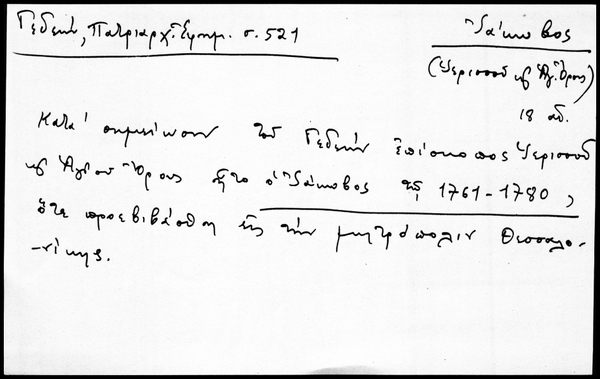 Γεδεών, Πατριαρχ. Ἐφημ. σ. 521
Ἰάκωβος
(Ἱερισσοῦ καὶ Ἁγ. Ὄρους)
18 αἰ.
Κατά σημείωσιν τοῦ Γεδεών ἐπίσκοπος Ἱερισσοῦ
καὶ Ἁγίου Ὄρους ἦτο ὁ Ἰάκωβος τῷ 1761-1780,
ὅτε προεβιβάσθη εἰς τὴν μητρόπολιν Θεσσαλο-
-νίκης.